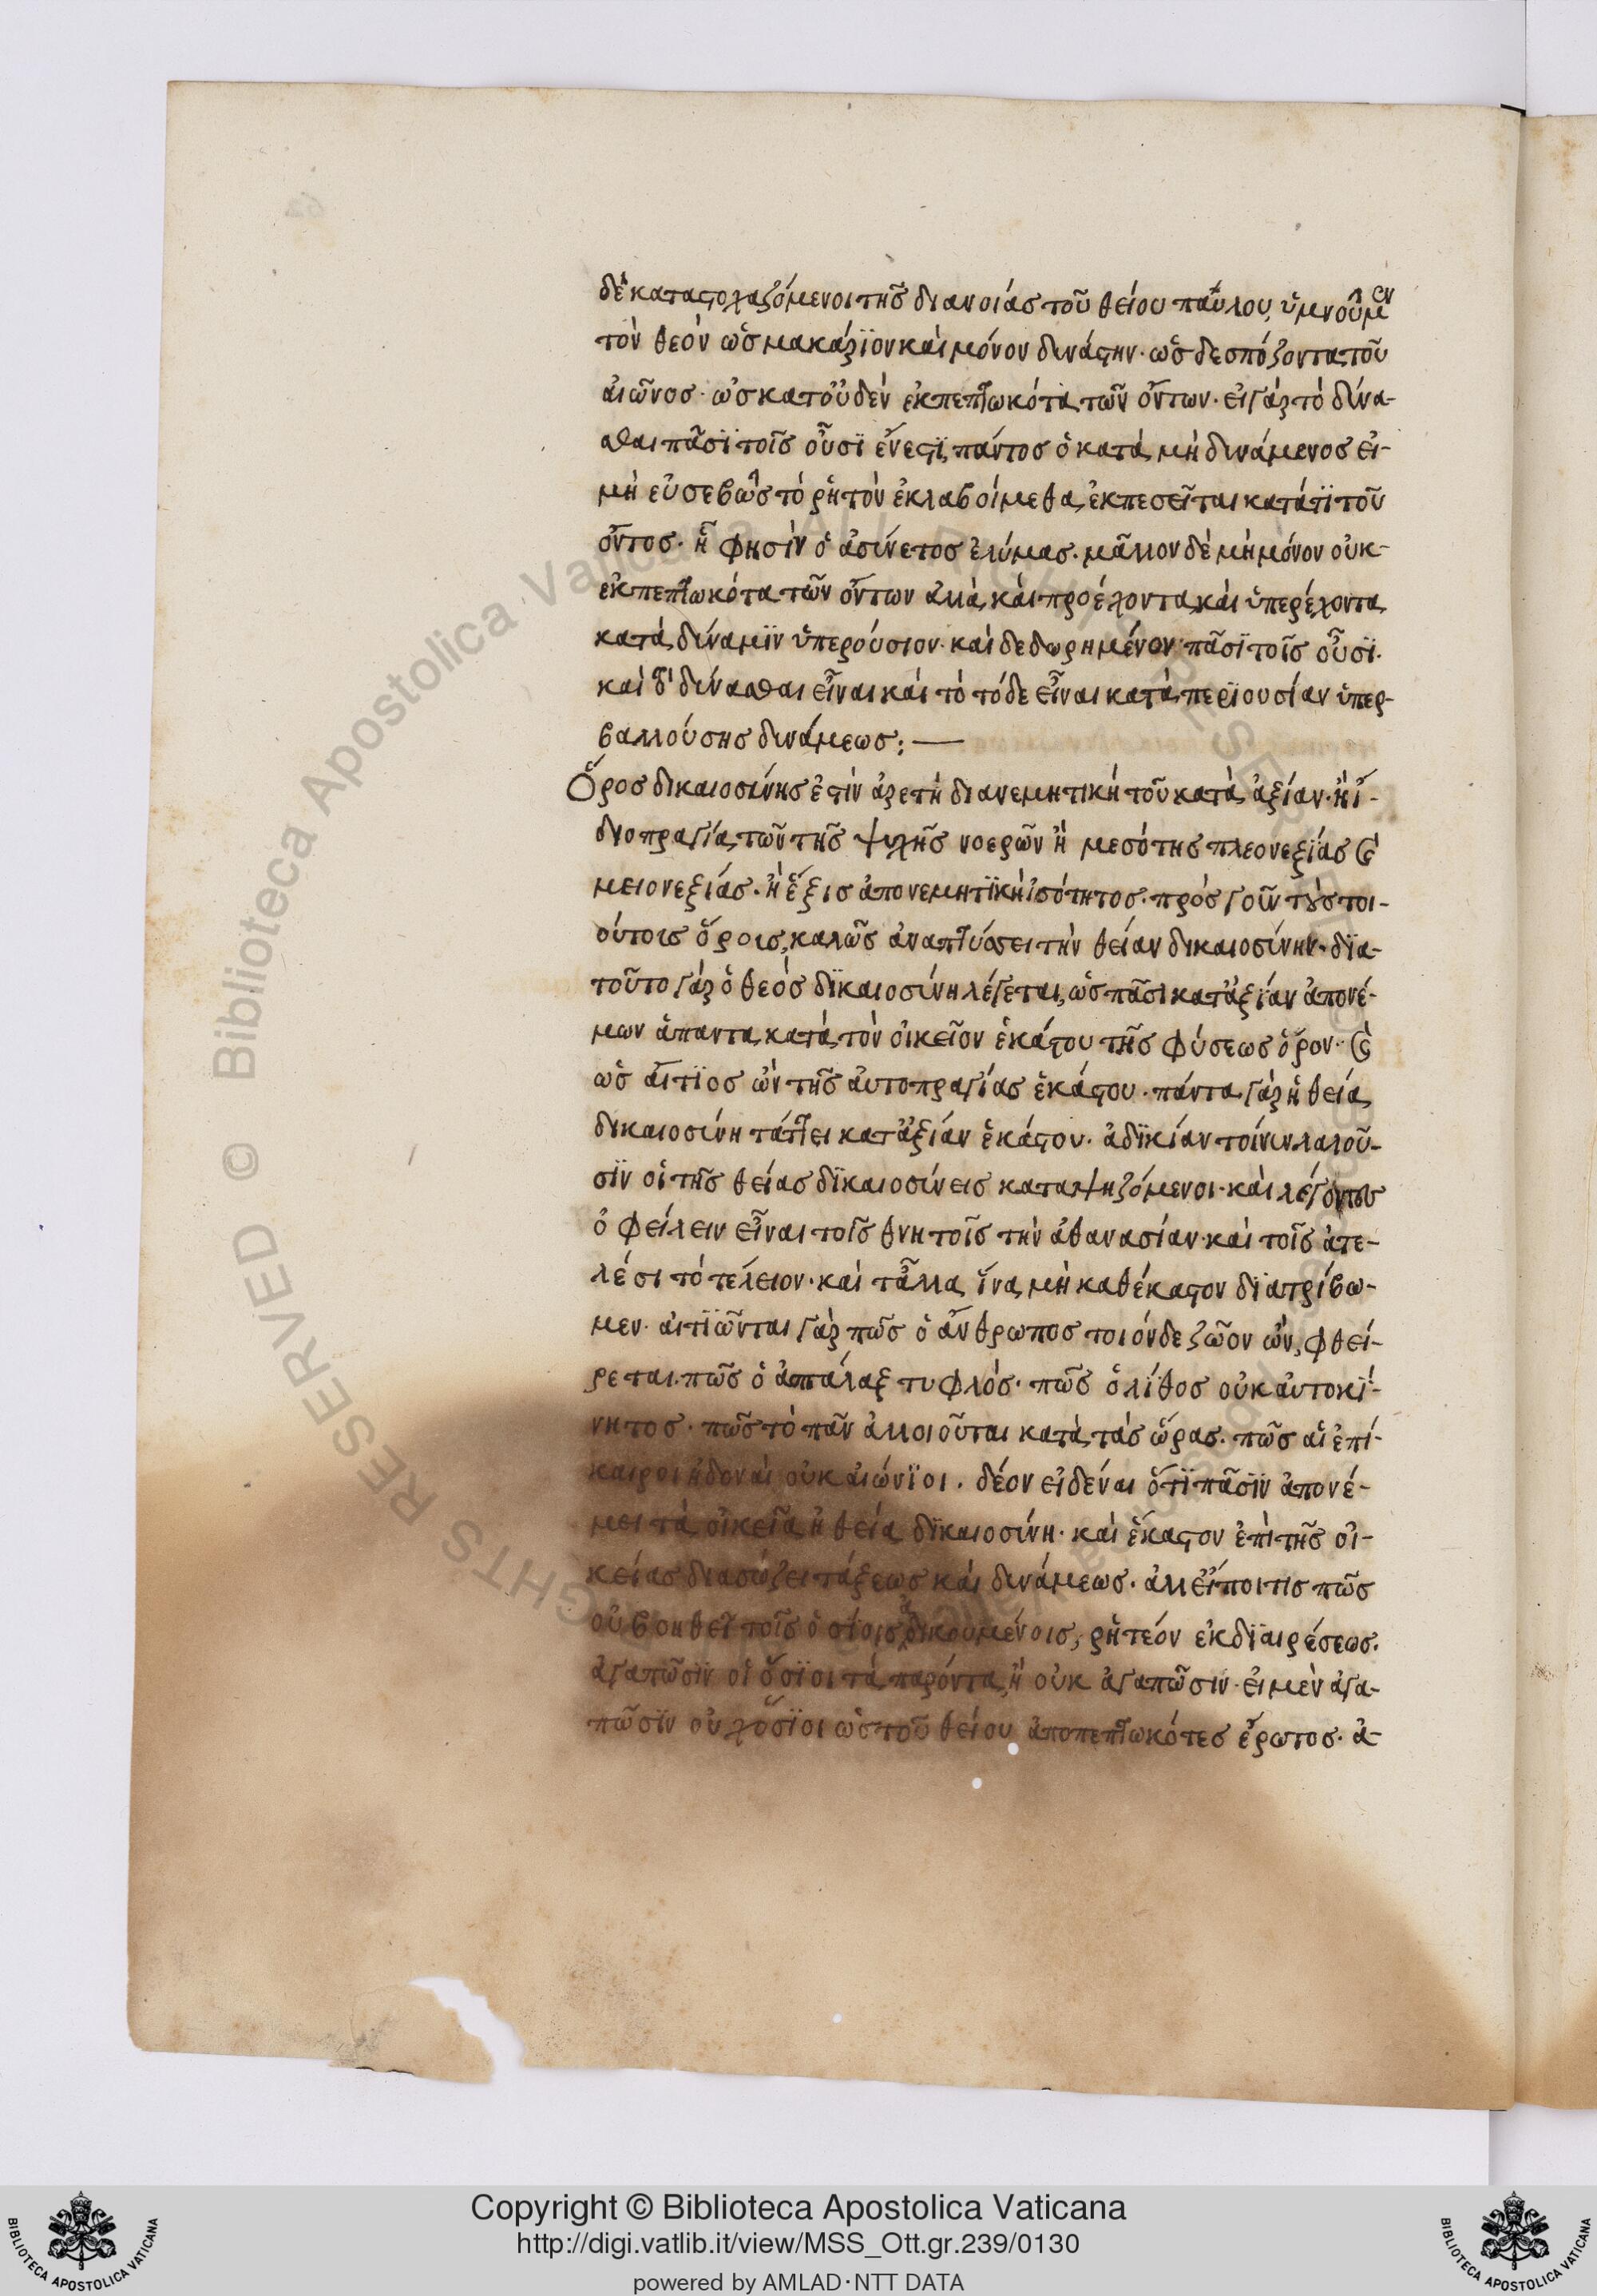 δὲ καταστοχαζόμενοι τῆς διανοίας τοῦ θείου παύλου, ὑμνοῦμεν
τὸν θεὸν ὡς μακάριον καὶ μόνον δυνάστην· ὡς δεσπόζοντα τοῦ
αἰῶνος· ὡς κατοὐδὲν ἐκπεπτωκότα τῶν ὄντων· εἰ γὰρ τὸ δύνα-
σθαι πᾶσϊ τοῖς οὖσϊ ἔνεστϊ, πάντος ὁ κατὰ μὴ δυνάμενος εἰ-
μὴ εὐσεβῶς τὸ ῥητὸν ἐκλαβοίμεθα, ἐκπεσεῖται κατάτϊ τοῦ
ὄντος· ἧ φησὶν ὁ ἀσύνετος ἐλύμας· μᾶλλον δὲ μὴ μόνον οὐκ-
ἐκπεπτωκότα τῶν ὄντων ἀλλὰ καὶ προέχοντα καὶ ὑπερέχοντα
κατὰ δύναμϊν ὑπερούσιον· καὶ δεδωρημένον πᾶσϊ τοῖς οὖσϊ·
καὶ δϊ δύνασθαι εἶναι καὶ τὸ τόδε εἶναι κατὰ περϊουσίαν ὑπερ-
βαλλούσης δυνάμεως: —
Ὅρος δικαιοσύνης ἐστὶν ἀρετὴ διανεμητικὴ τοῦ κατὰ ἀξίαν· ἢ ἰ-
διοπραγία τῶν τῆς ψυχῆς νοερῶν ἢ μεσότης πλεονεξίας καὶ
μειονεξίας· ἢ ἕξις ἀπονεμητϊκὴ ἰσότητος· πρὸς γοῦν τοὺς τοι-
ούτοις ὅροις, καλῶς ἀναπτύσσει τὴν θείαν δικαιοσύνην· δϊα-
τοῦτο γὰρ ὁ θεὸς δϊκαιοσύνη λέγεται, ὡς πᾶσι κατἀξϊαν ἀπονέ-
μων ἅπαντα κατὰ τὸν οἰκεῖον ἑκάστου τῆς φύσεως ὅρον· καὶ
ὡς αἴτϊος ὢν τῆς αὐτοπραγίας ἑκάστου· πάντα γὰρ ἡ θεία
δικαιοσύνη τάττει κατἀξίαν ἑκάστου· ἀδϊκίαν τοίνυν λαλοῦ-
σϊν οἱ τῆς θείας δϊκαιοσύνεις καταψηζόμενοι· καὶ λέγοντες
ὀφείλειν εἶναι τοῖς θνητοῖς τὴν ἀθανασίαν· καὶ τοῖς ἀτε-
λέσι τὸ τέλειον· καὶ τἆλλα, ἵνα μὴ καθέκαστον δϊατρίβω-
μεν· αἰτϊῶνται γὰρ πῶς ὁ ἄνθρωπος τοιόνδε ζῶον ὤν, φθεί-
ρεται· πῶς ὁ ἀσπάλαξ τυφλός· πῶς ὁ λίθος οὐκ αὐτοκί-
νητος· πῶς τὸ πᾶν ἀλλοιοῦται κατὰ τὰς ὥρας· πῶς αἱ ἐπί-
καιροι ἡδοναὶ οὐκ αἰώνϊοι· δέον εἰδέναι ὅτϊ πᾶσϊν ἀπονέ-
μει τὰ οἰκεῖα ἡ θεία δϊκαιοσύνη· καὶ ἕκαστον ἐπὶ τῆς οἰ-
κείας διασώζει τάξεως καὶ δυνάμεως· ἀλλεἴποι τις πῶς
οὐ βοηθεῖ τοῖς ὁσίοις ἀδικουμένοις, ῥητέον ἐκ δϊαιρέσεως·
ἀγαπῶσϊν οἱ ὅσϊοι τὰ παρόντα, ἢ οὐκ ἀγαπῶσιν· εἰ μὲν ἀγα-
πῶσϊν οὐχ ὅσϊοι ὡς τοῦ θείου ἀποπεπτωκότες ἔρωτος· ἀ-
© Biblioteca Apostolica Vaticana ALL RIGHTS RESERVED
Copyright © Biblioteca Apostolica Vaticana
http://digi.vatlib.it/view/MSS_Ott.gr.239/0130
powered by AMLAD·NTT DATA
BIBLIOTECA APOSTOLICA VATICANA
BIBLIOTECA APOSTOLICA VATICANA